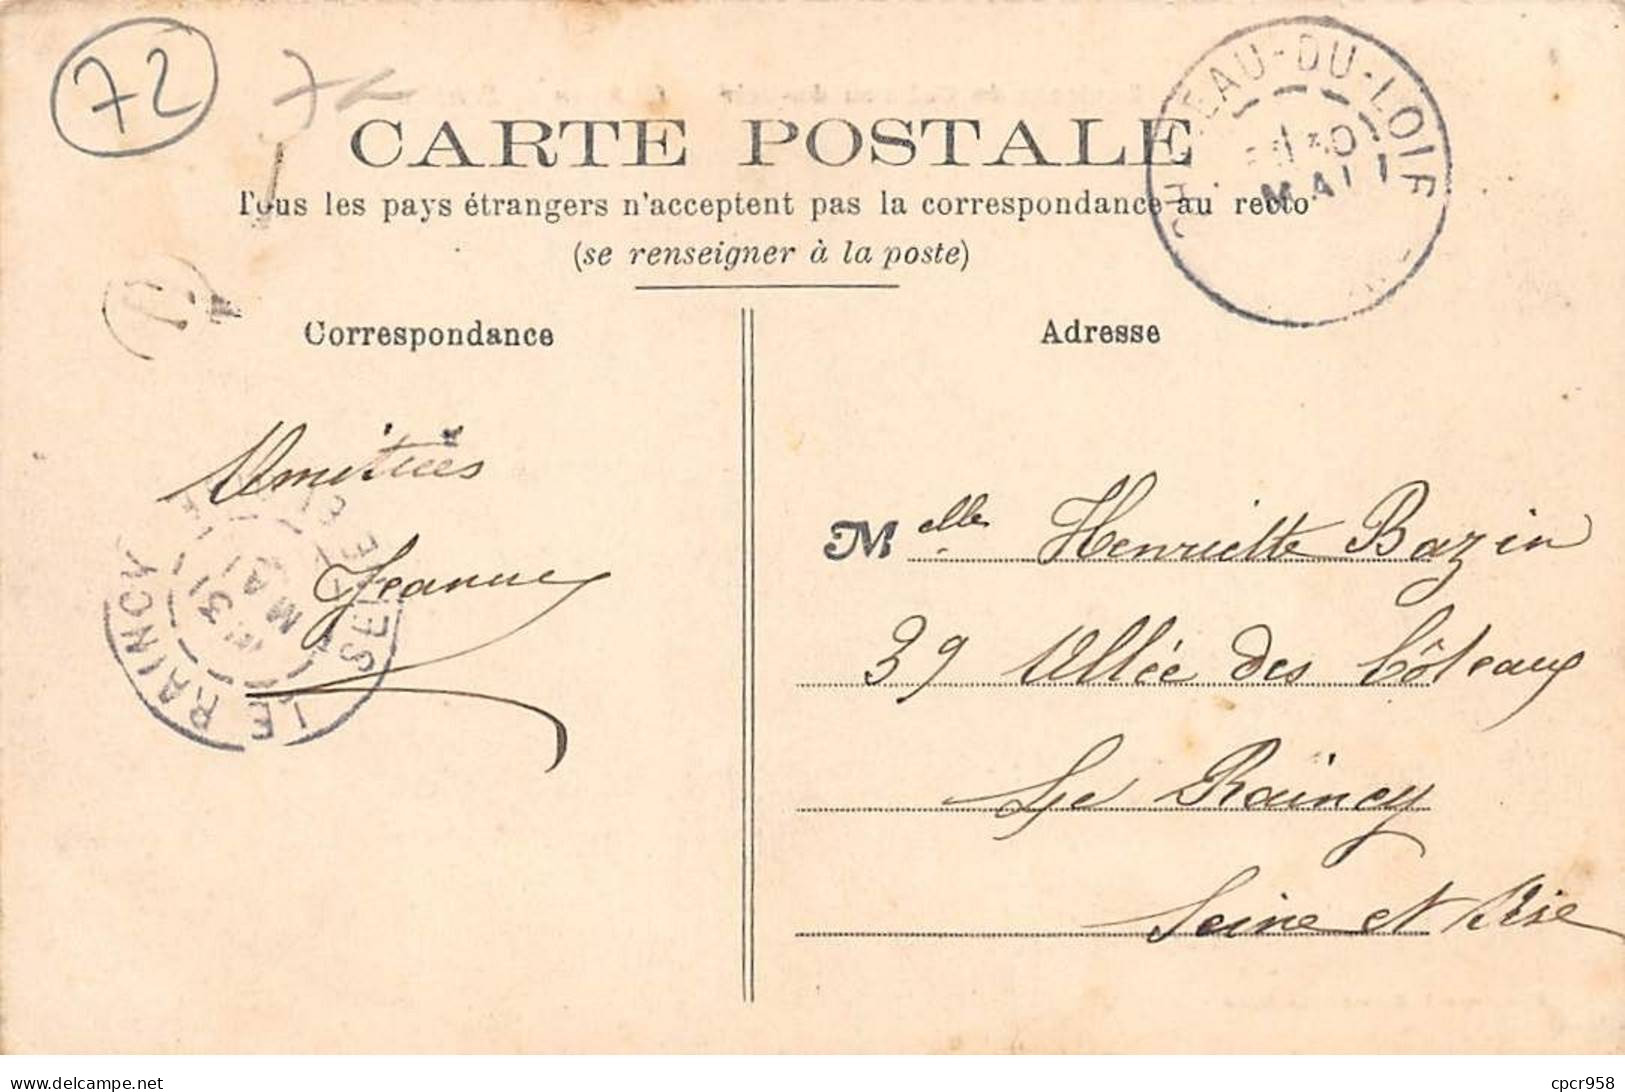 72
CARTE POSTALE
Tous les pays étrangers n'acceptent pas la correspondance au recto
(se renseigner à la poste)
CHATEAU-DU-LOIR
30
MAI
Correspondance
Adresse
Amitiés
Jeanne
LE RAINCY
SEINE ET
31
MAI
Melle Henriette Bazin
39 Allée des Côteaux
Le Raincy
Seine et Oise
www.delcampe.net
cpcr958